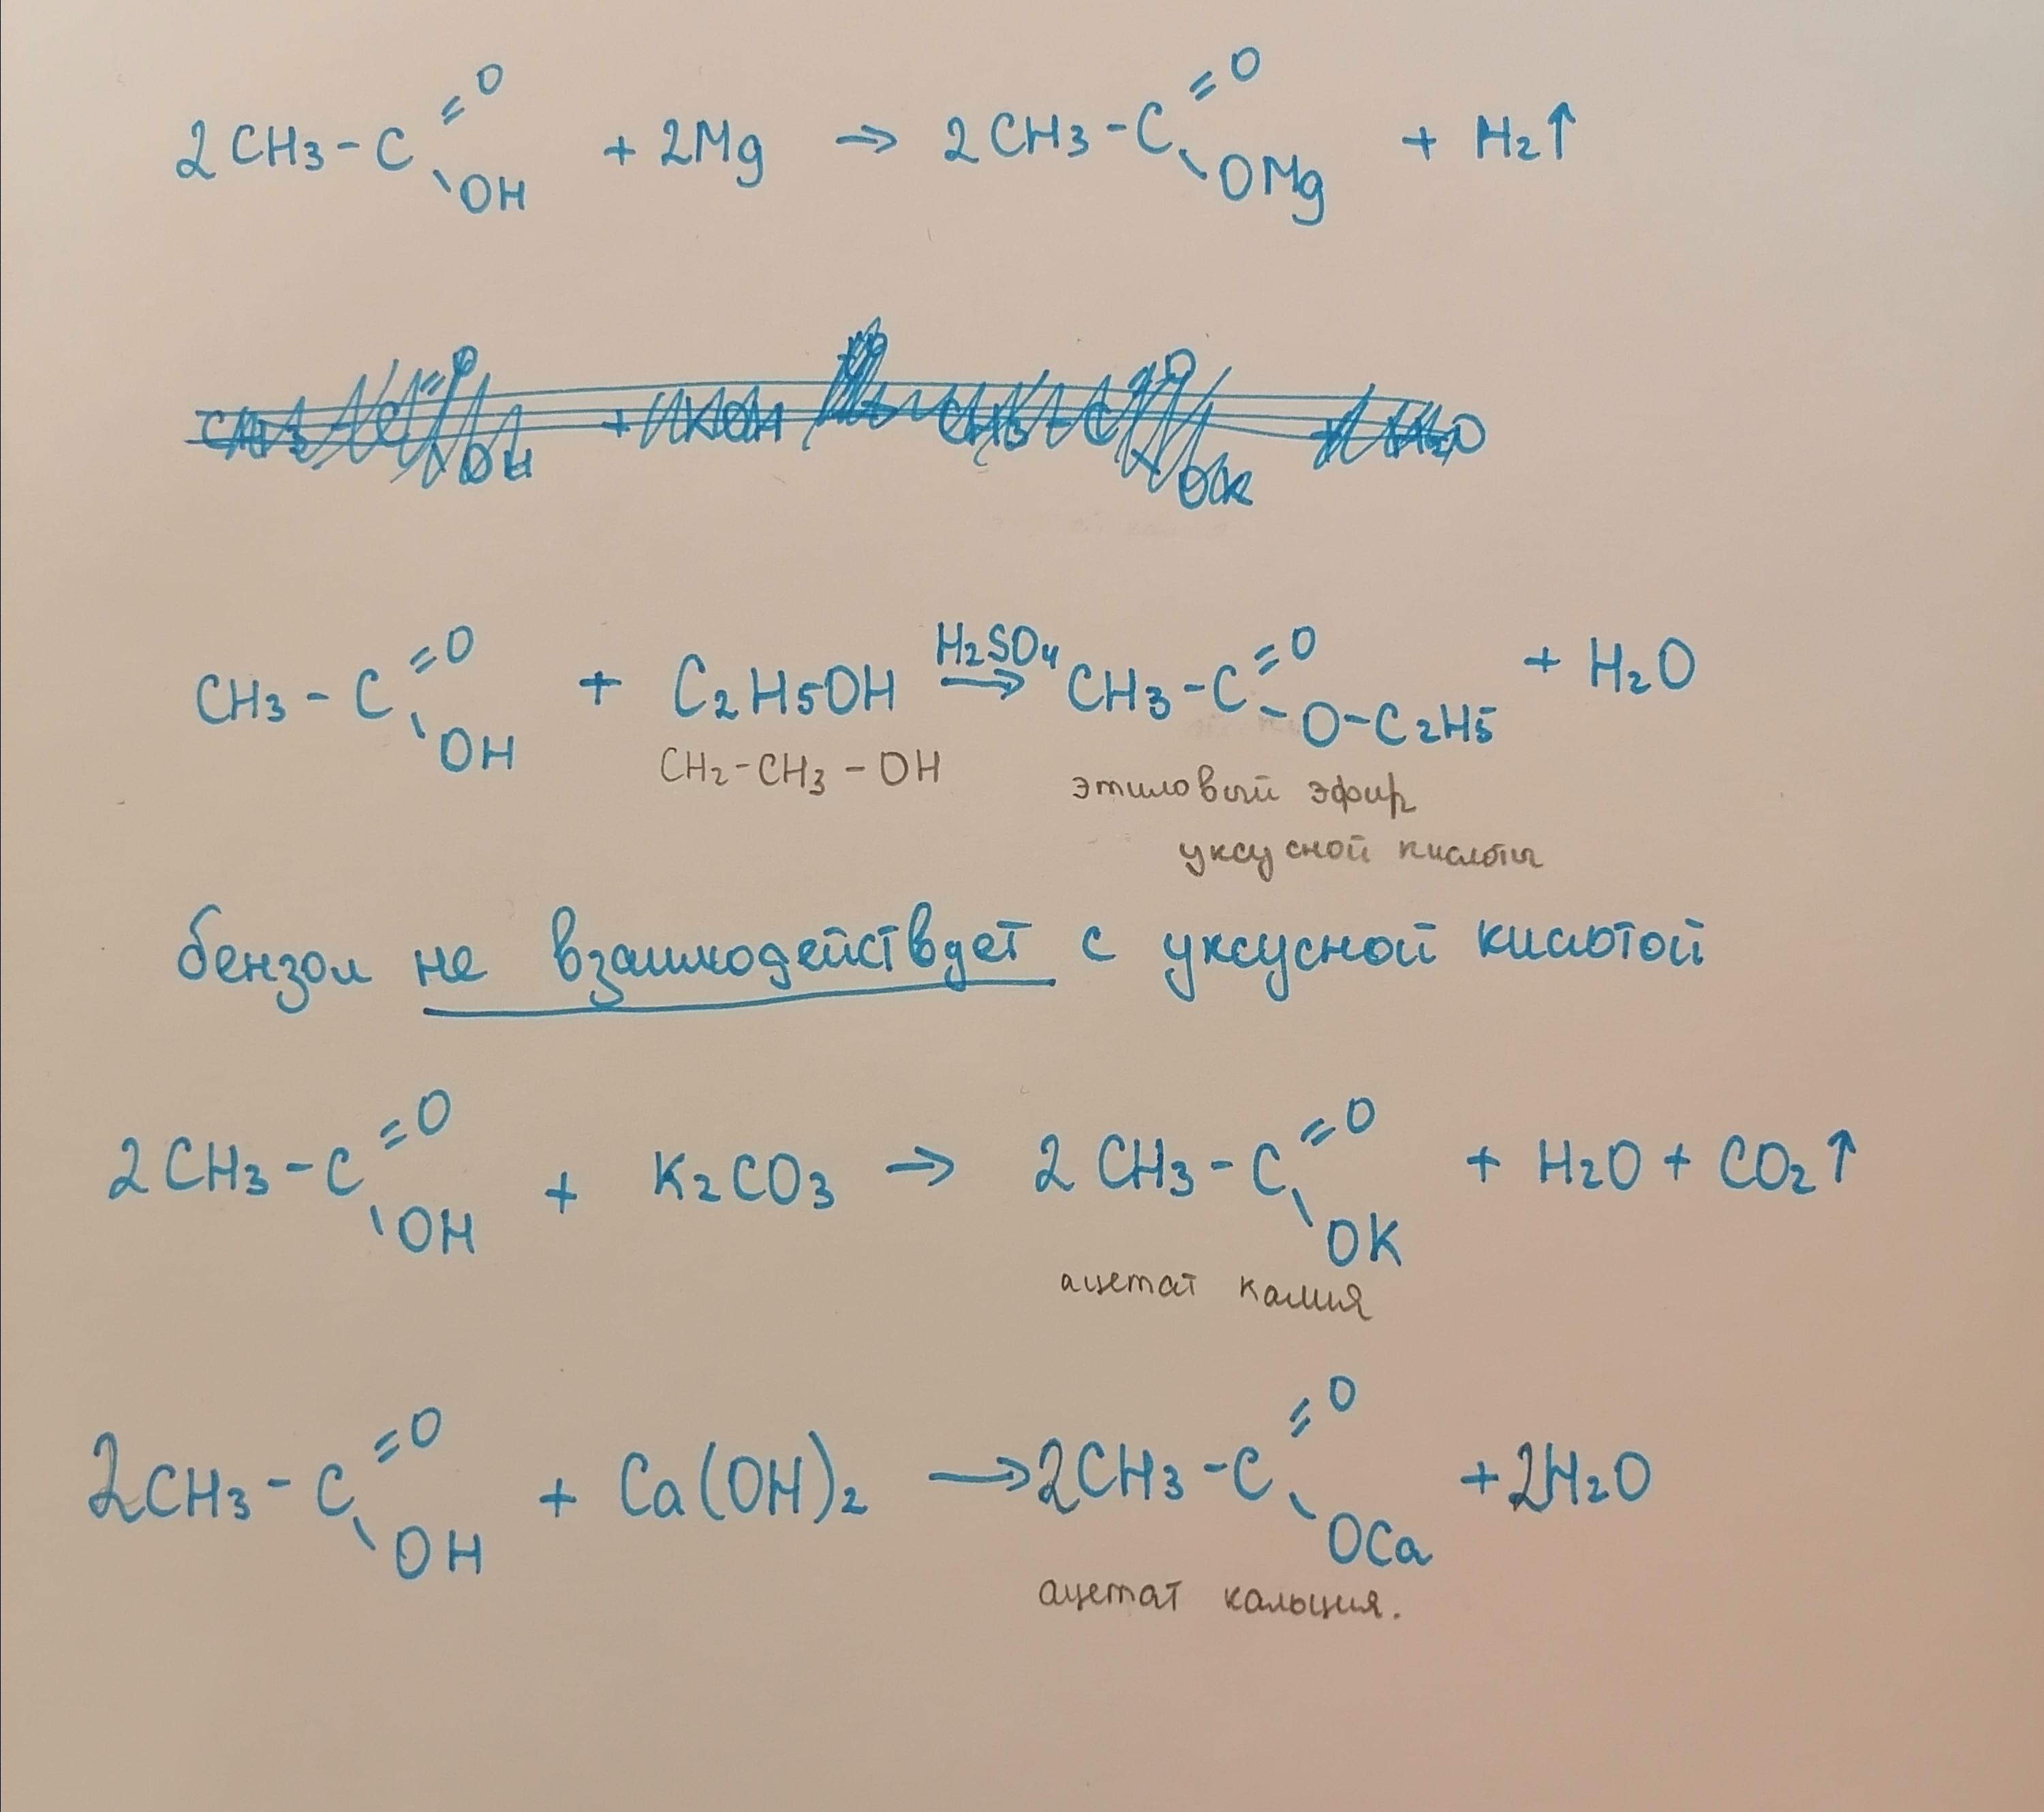 2CH3-C=O-OH + 2Mg → 2CH3-C=O-OMg + H2↑
CH3-C=O-OH + KOH → CH3-C=O-OK + H2O
CH3-C=O-OH + C2H5OH H2SO4→ CH3-C=O-O-C2H5 + H2O
CH2-CH3-OH этиловый эфир
уксусной кислоты
бензол не взаимодействует с уксусной кислотой
2CH3-C=O-OH + K2CO3 → 2CH3-C=O-OK + H2O + CO2↑
ацетат калия
2CH3-C=O-OH + Ca(OH)2 → 2CH3-C=O-OCa + 2H2O
ацетат кальция.